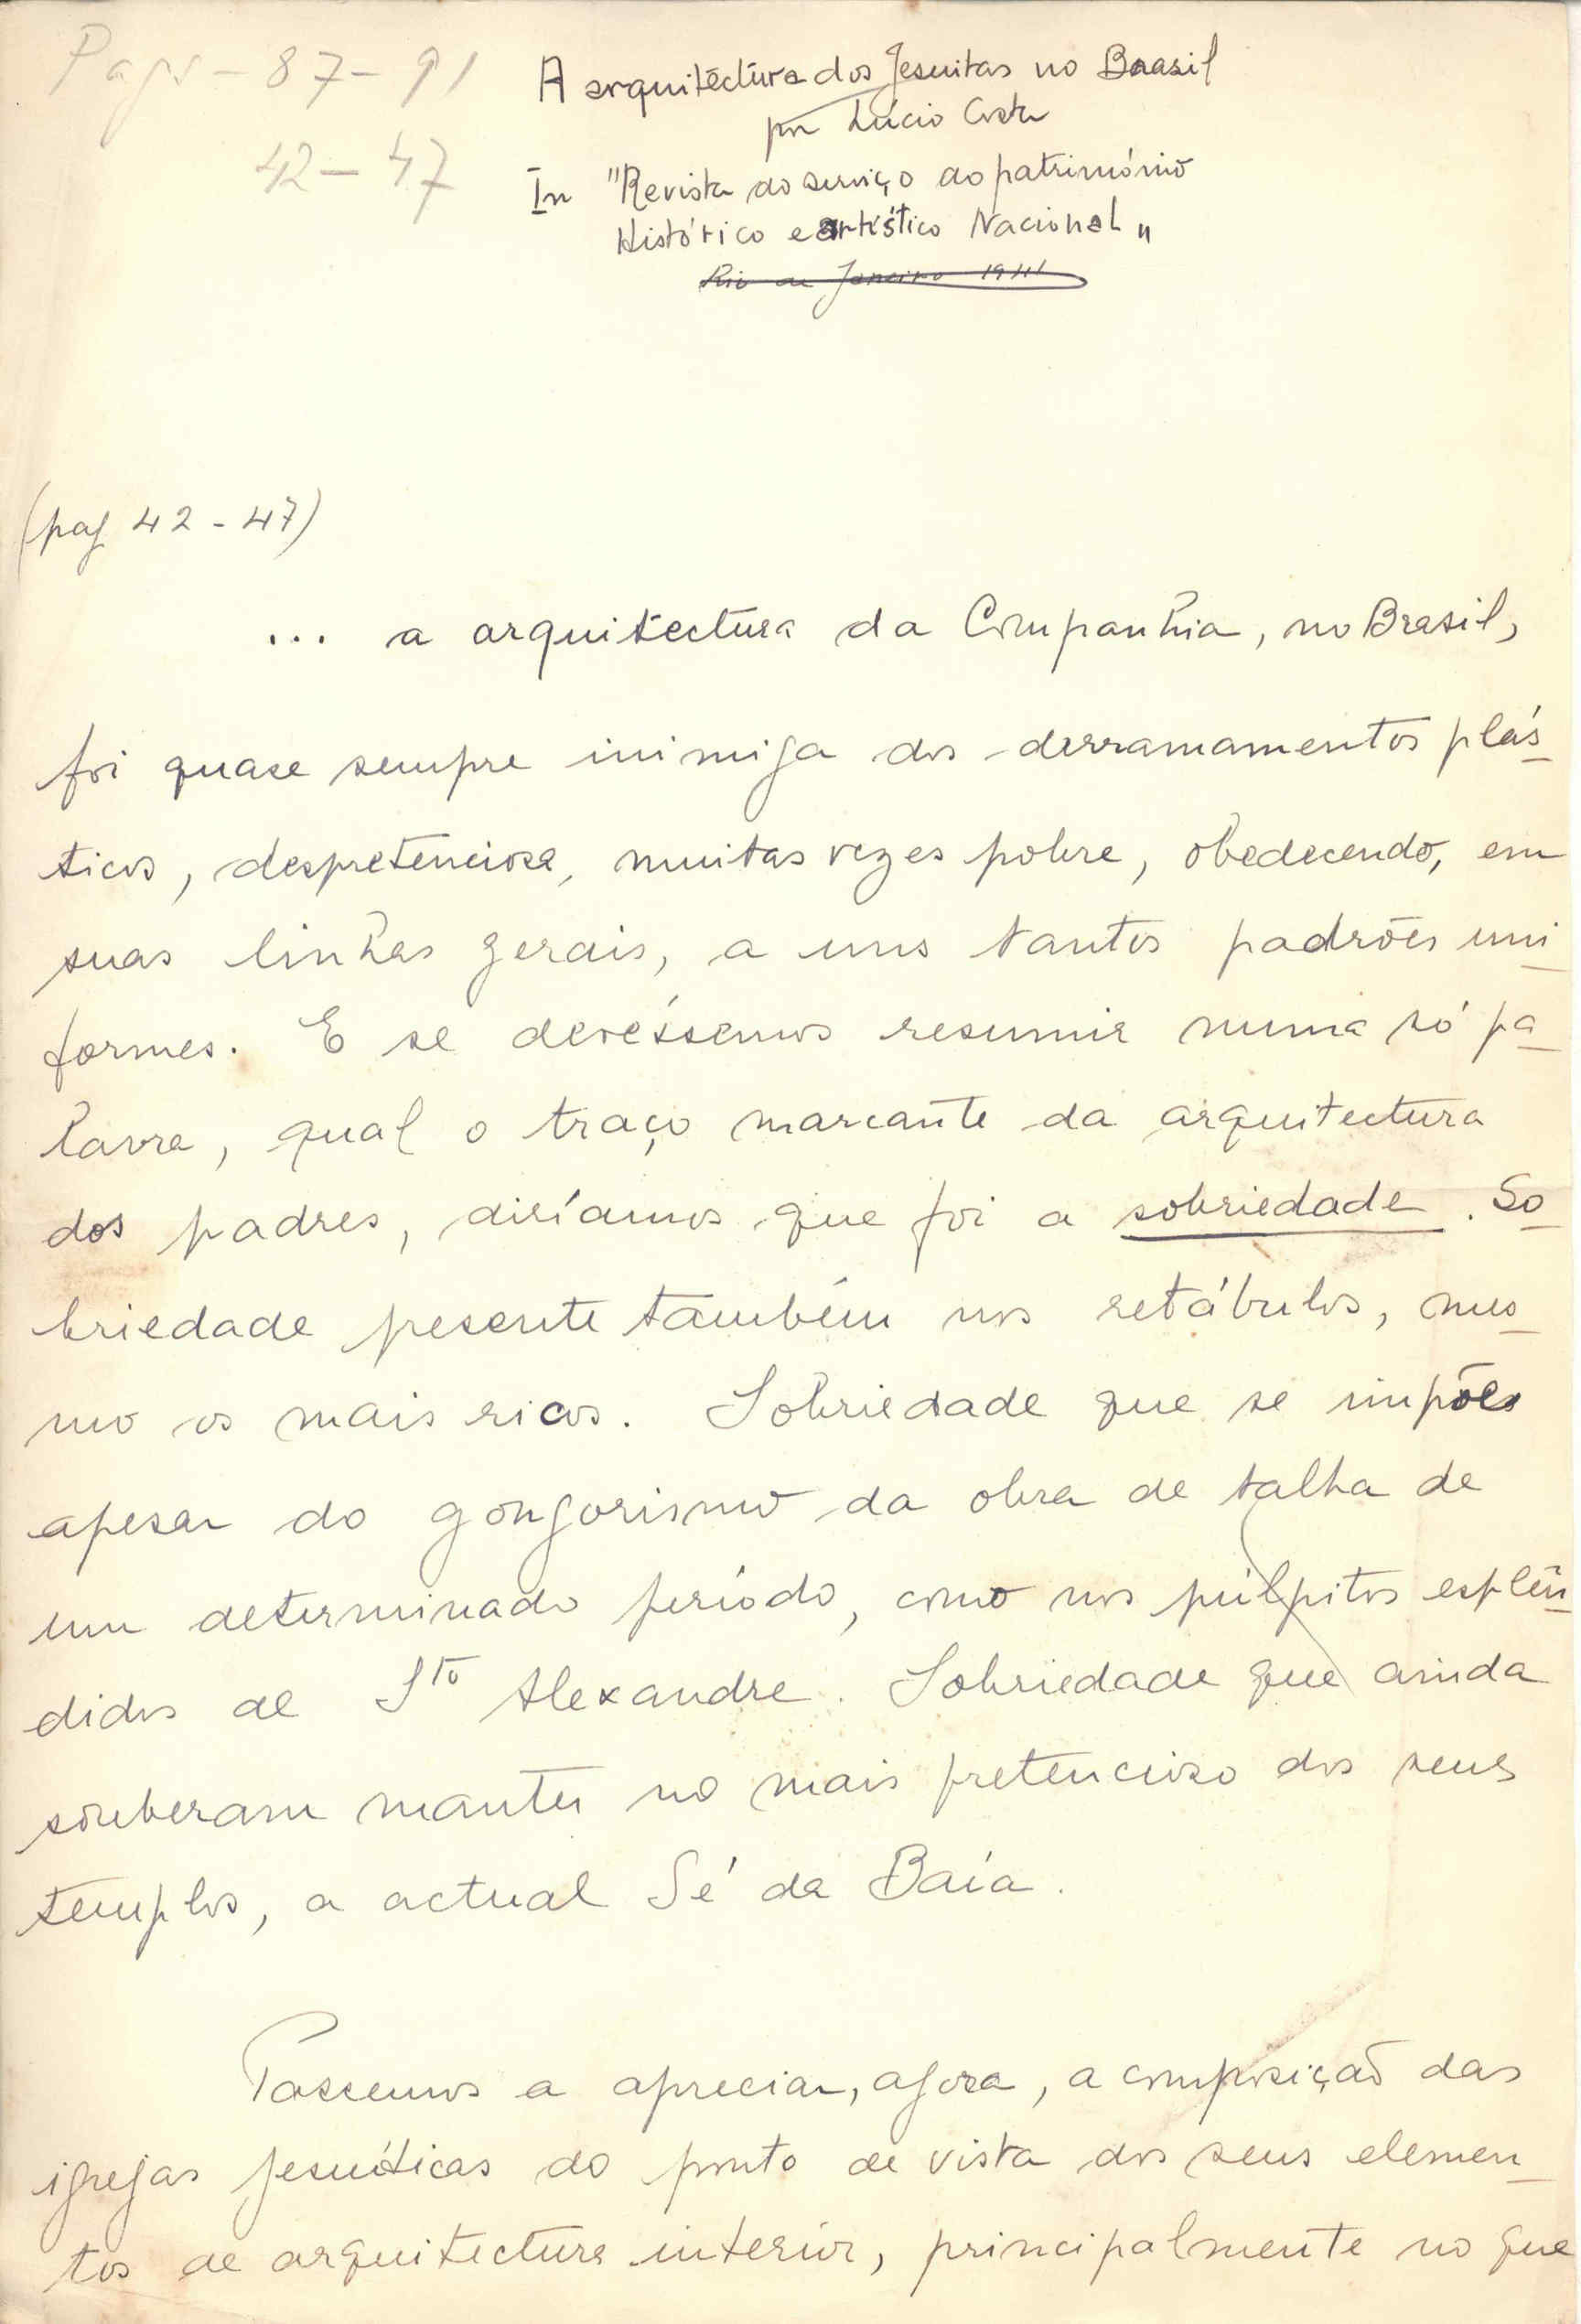 Pags - 87 - 91
42 - 47
A arquitectura dos Jesuitas no Brasil
por Lúcio Costa
In "Revista do serviço do património
Histórico e artístico Nacional"
Rio de Janeiro 1941
(pag 42 - 47)
... a arquitectura da Companhia, no Brasil,
foi quase sempre inimiga dos derramamentos plás
ticos, despretenciosa, muitas vezes pobre, obedecendo, em
suas linhas gerais, a uns tantos padrões uni
formes. E se devéssemos resumir numa só pa
lavra, qual o traço marcante da arquitectura
dos padres, diríamos que foi a sobriedade. So
briedade presente também nos retábulos, mes
mo os mais ricos. Sobriedade que se impões
apesar do gongorismo da obra de talha de
um determinado período, como nos púlpitos esplên
didos de Sto Alexandre. Sobriedade que ainda
souberam manter no mais pretencioso dos seus
templos, a actual Sé da Baía.
Passemos a apreciar, agora, a composição das
igrejas jesuíticas do ponto de vista dos seus elemen
tos de arquitectura interior, principalmente no que